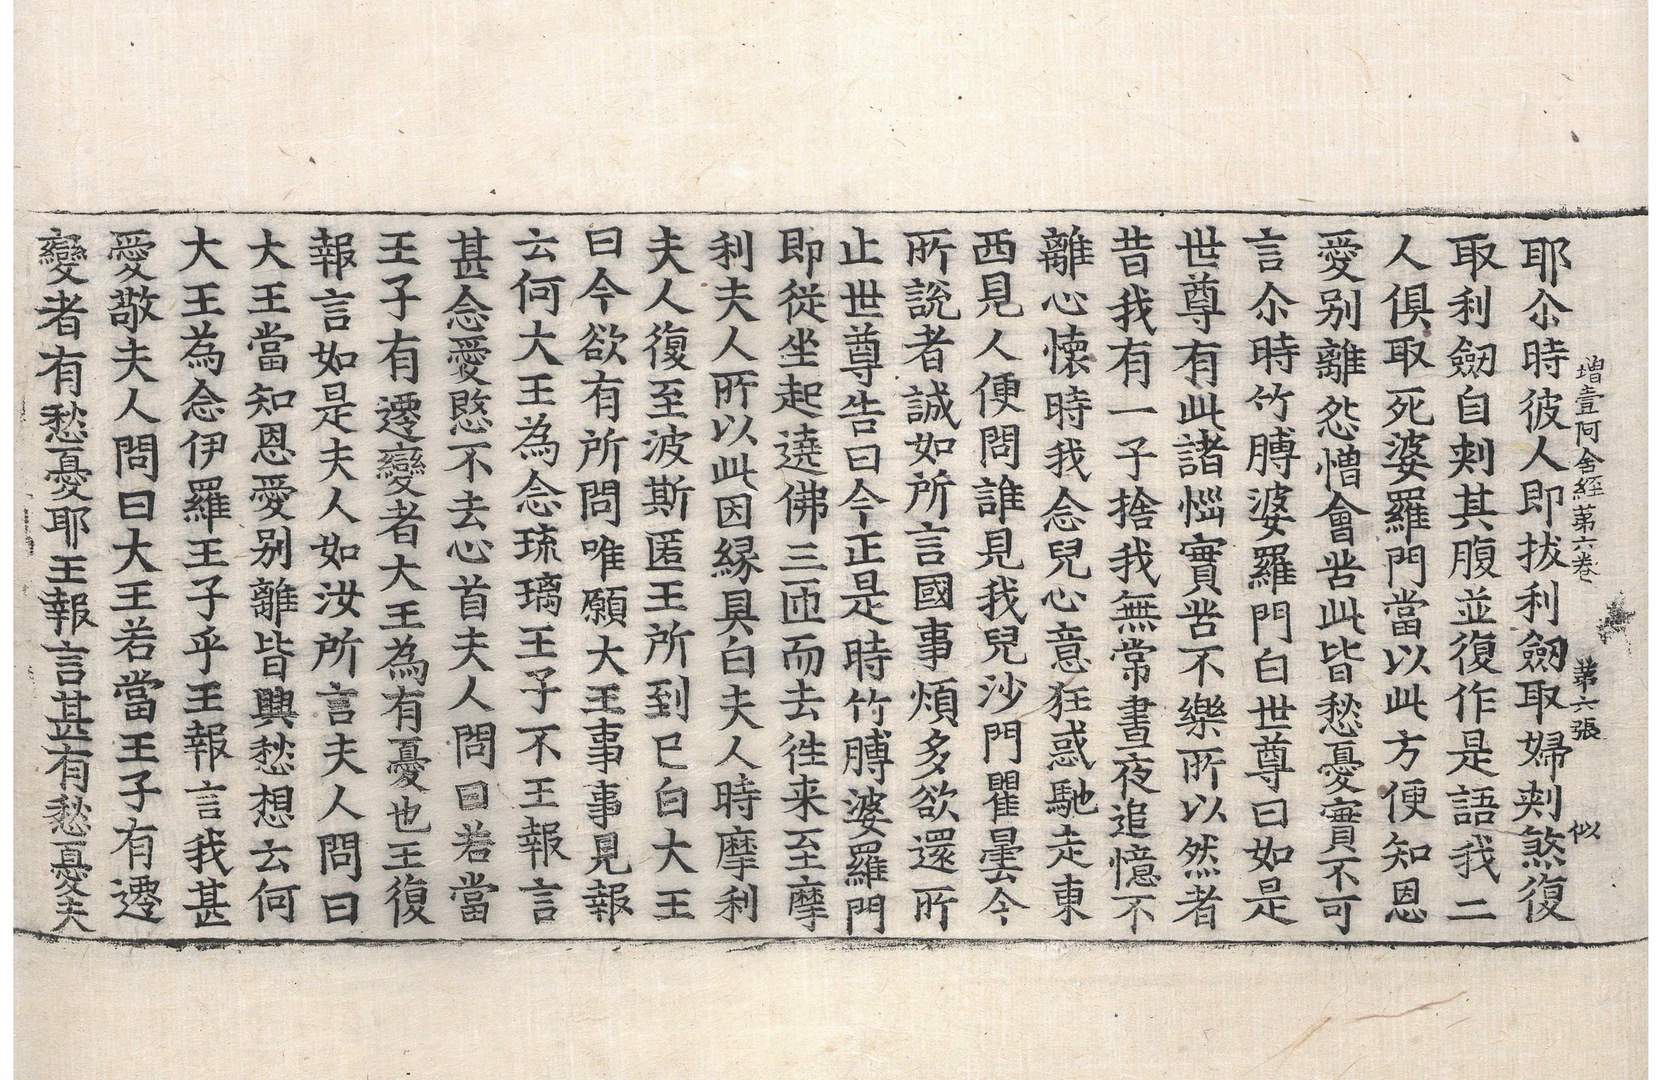 增壹阿含經第六卷　第六張　似
耶尒時彼人即拔利劒取婦刾煞復
取利劒自刾其腹並復作是語我二
人俱取死婆羅門當以此方便知恩
愛别離怨憎會苦此皆愁憂實不可
言尒時竹膊婆羅門白世尊曰如是
世尊有此諸惱實苦不樂所以然者
昔我有一子捨我無常晝夜追憶不
離心懷時我念兒心意狂惑馳走東
西見人便問誰見我兒沙門瞿曇今
所說者誠如所言國事煩多欲還所
止世尊告曰今正是時竹膊婆羅門
即從坐起遶佛三匝而去徃来至摩
利夫人所以此因緣具白夫人時摩利
夫人復至波斯匿王所到已白大王
曰今欲有所問唯願大王事事見報
云何大王為念琉璃王子不王報言
甚念愛愍不去心首夫人問曰若當
王子有遷變者大王為有憂也王復
報言如是夫人如汝所言夫人問曰
大王當知恩愛别離皆興愁想云何
大王為念伊羅王子乎王報言我甚
愛敬夫人問曰大王若當王子有遷
變者有愁憂耶王報言甚有愁憂夫